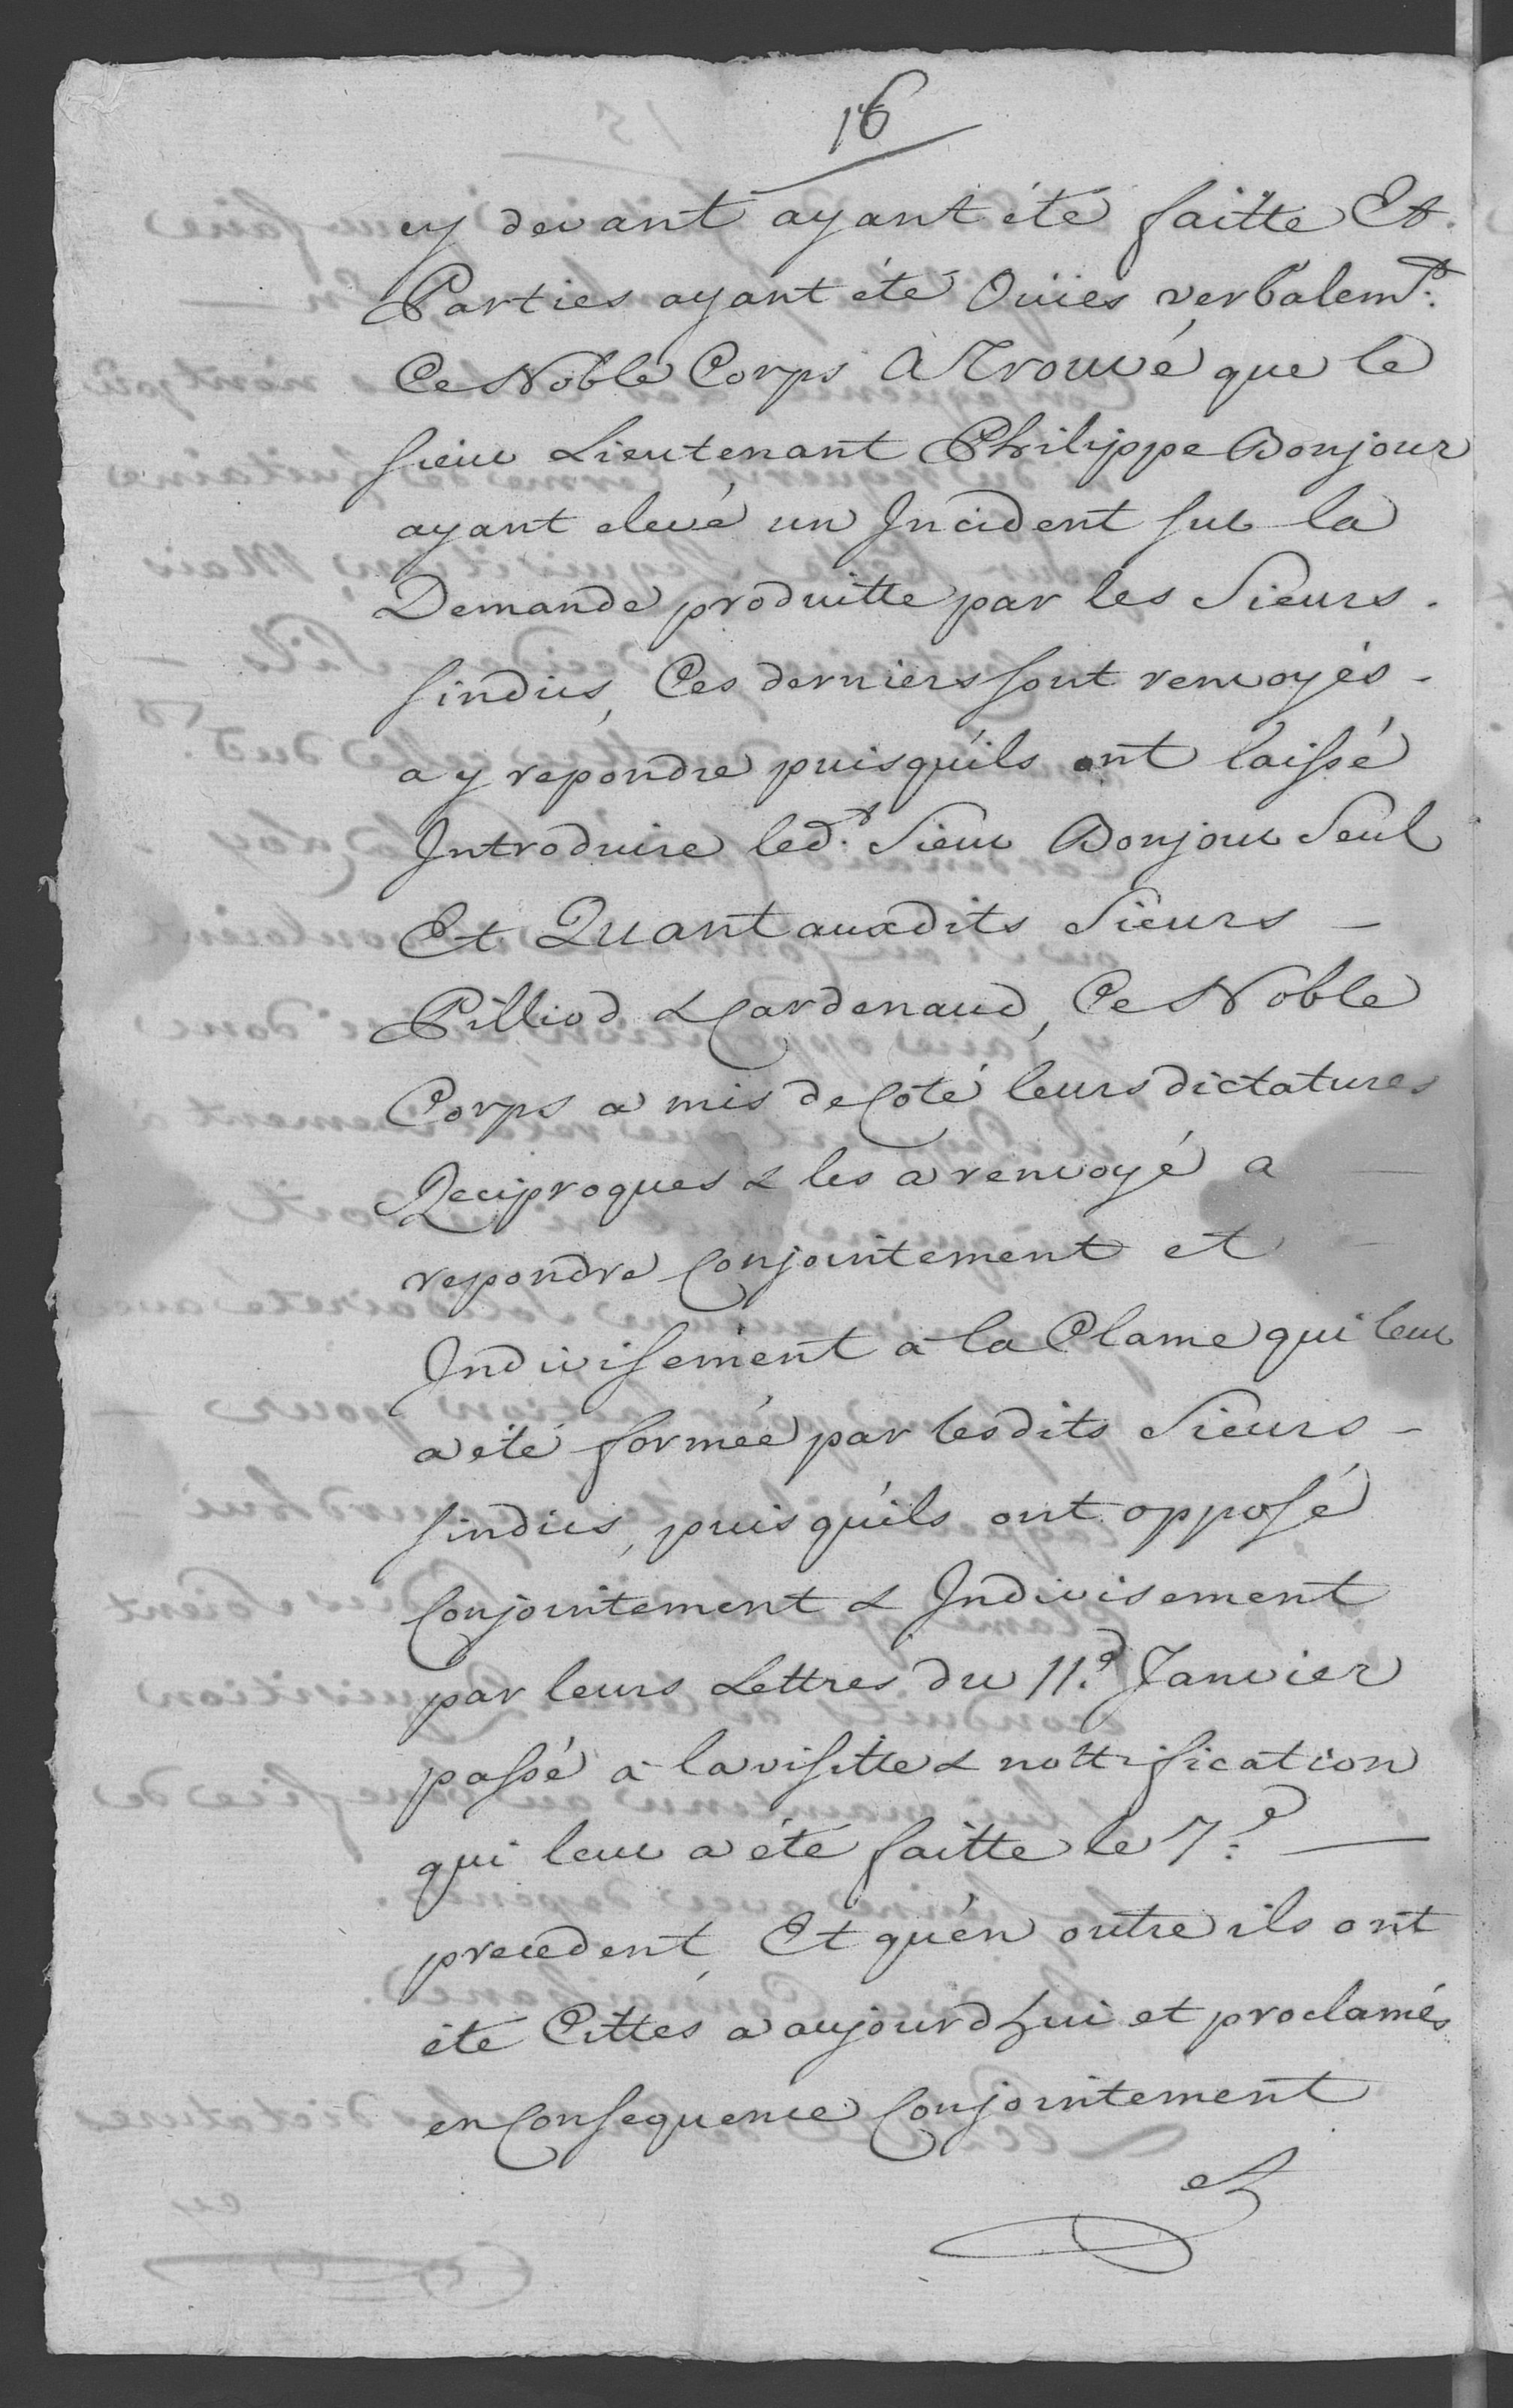 16
cy devant ayant été faitte Et
Parties ayant été Ouïes verbalemt:
Ce Noble Corps A Trouvé que le
sieur Lieutenant Philippe Bonjour
ayant elevé un Incident sur la
Demande produitte par les Sieurs
sindics, Ces derniers sont renvoyés
a y repondre puisqu'ils ont laissé
Introduire led.t Sieur Bonjour Seul
Et Quant auxdits Sieurs
Pilliod & Cardenaud, Ce Noble
Corps a mis de Coté leurs dictatures
Reciproques & les a renvoyé a
repondre Conjointement et
Indivisement a la Clame qui leur
a eté formée par lesdits Sieurs
sindics, puisqu'ils ont opposé
Conjointement & Indivisement
par leurs Lettres du 11.e Janvier
passé a la visitte & nottification
qui leur a été faitte le 7.e
precedent, Et qu'en outre ils ont
été Cittés a aujourdhui et proclamés
en Consequence Conjointement
et